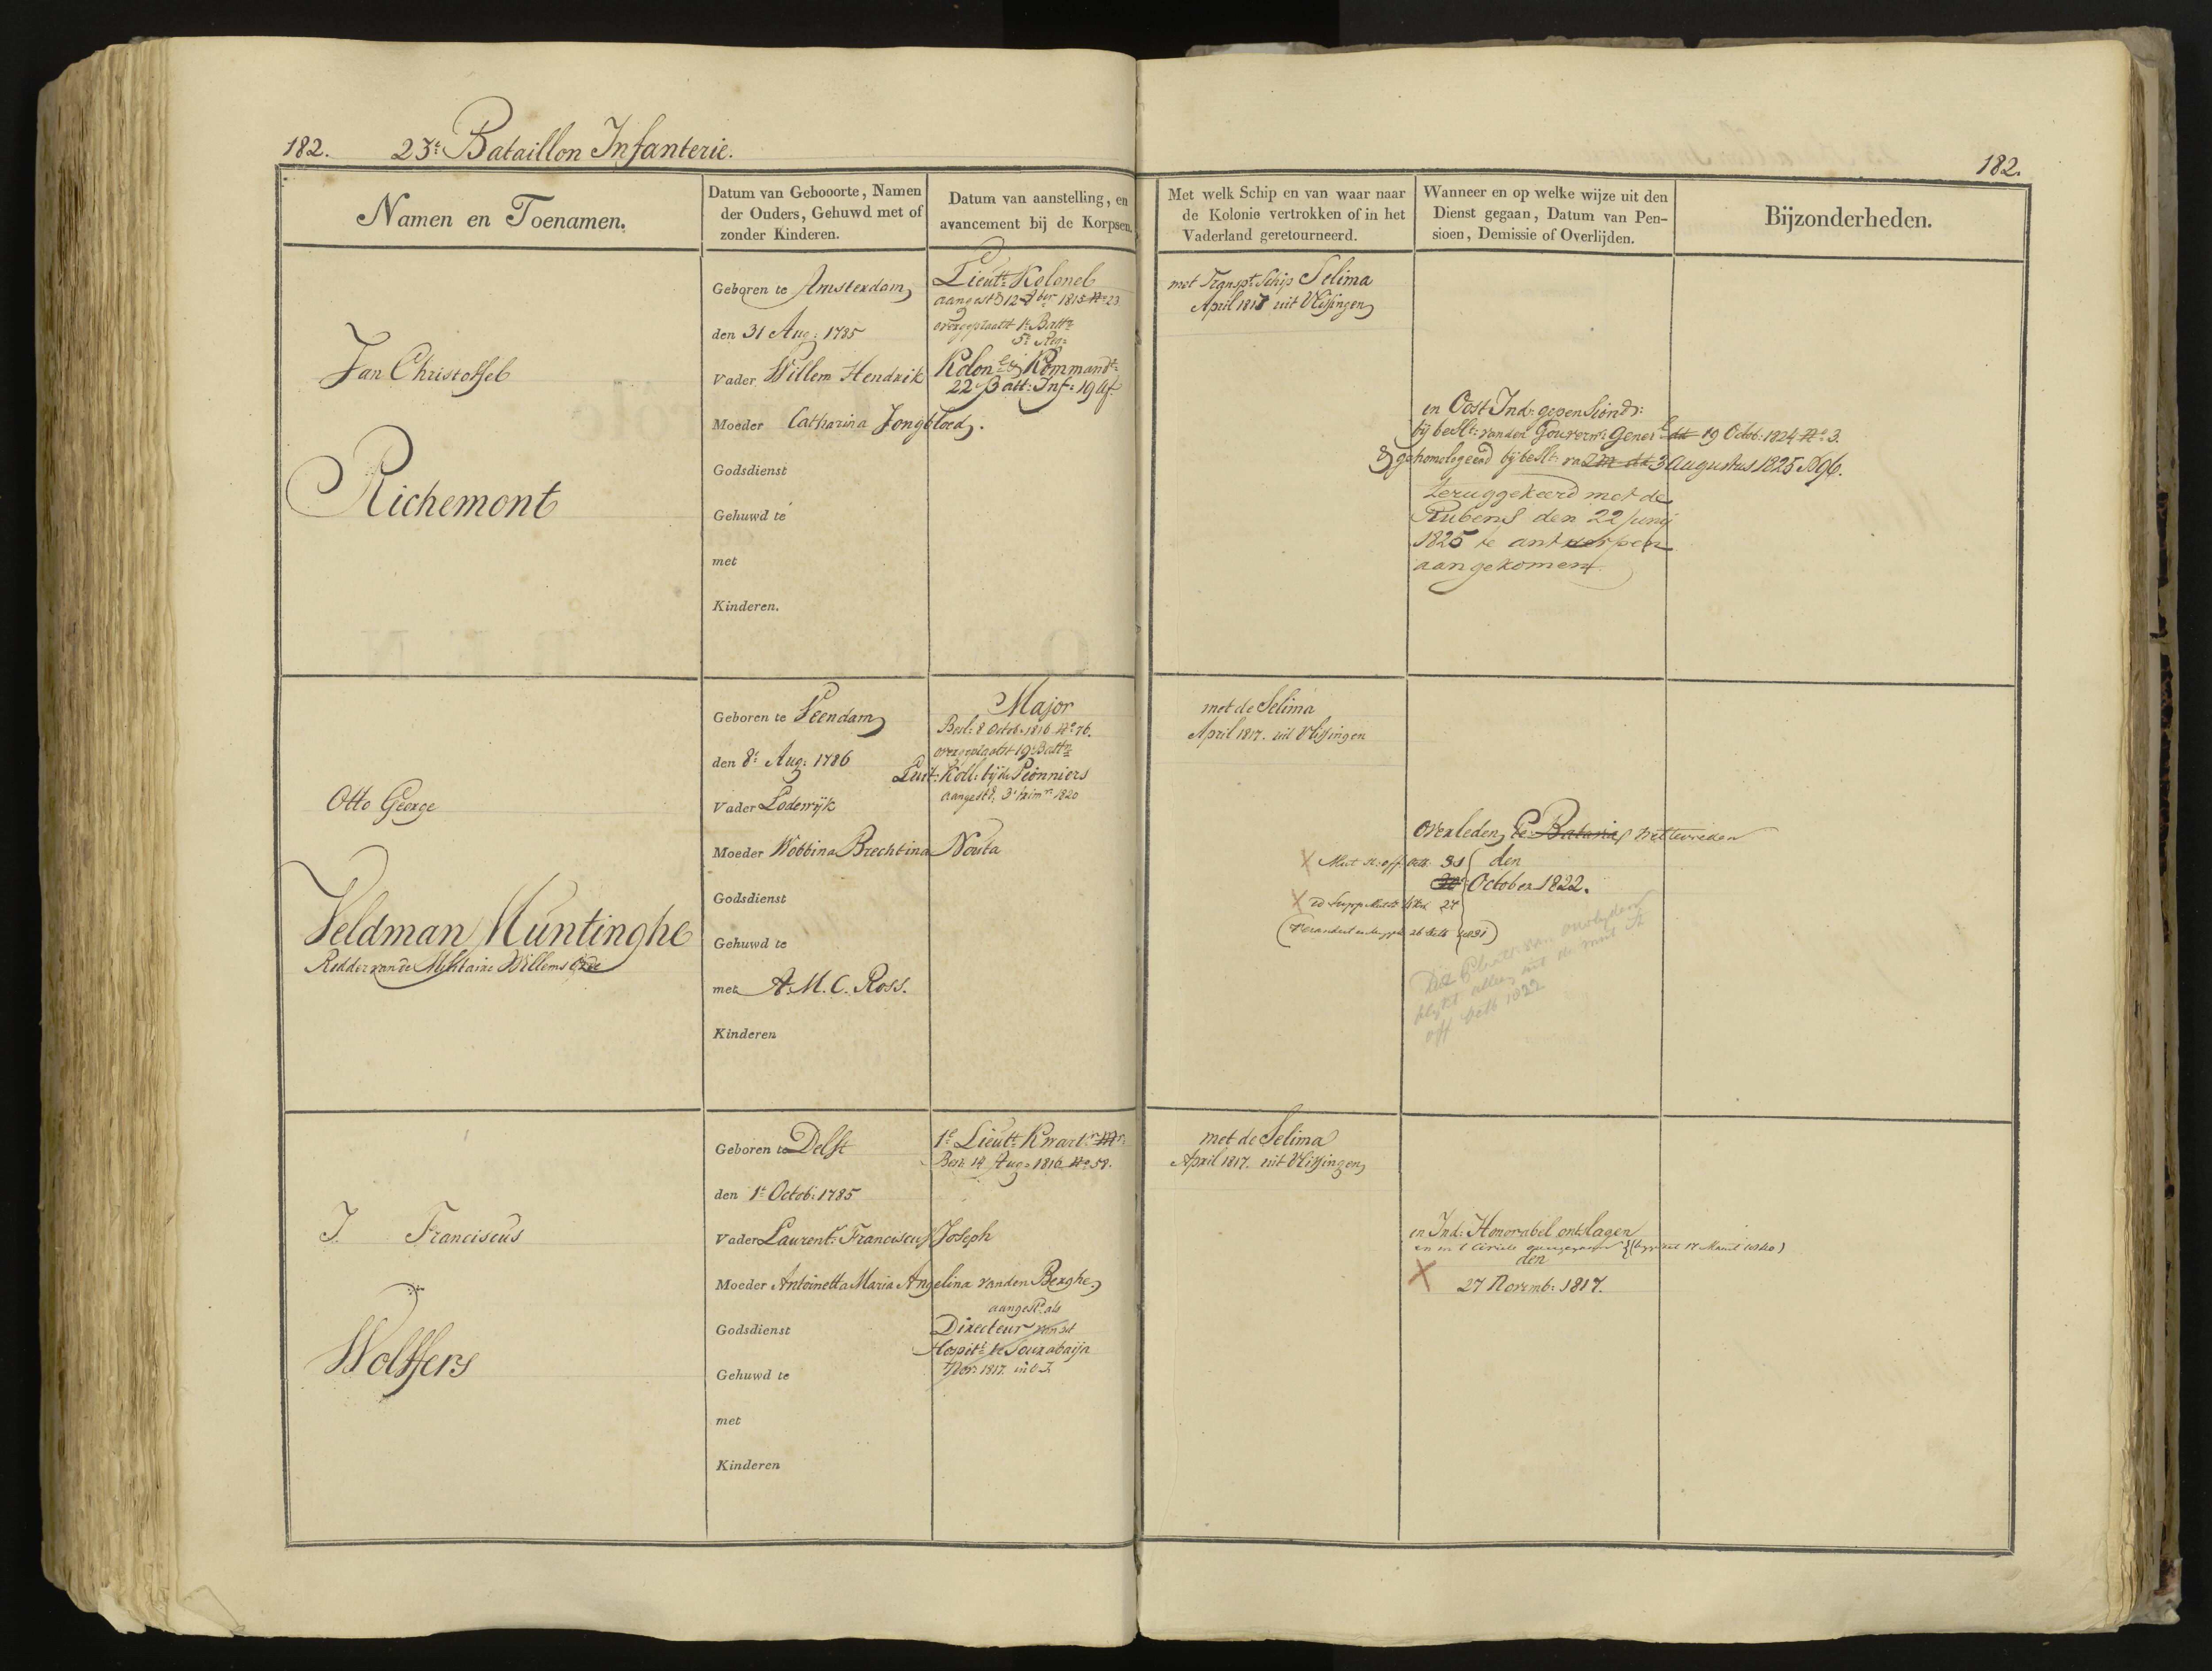 182. 23e Bataillon Infanterie.
182.
Namen en Toenamen.
Datum van Gebooorte, Namen
der Ouders, Gehuwd met of
zonder Kinderen.
Datum van aanstelling, en
avancement bij de Korpsen.
Met welk Schip en van waar naar
de Kolonie vertrokken of in het
Vaderland geretourneerd.
Wanneer en op welke wijze uit den
Dienst gegaan, Datum van Pen-
sioen, Demissie of Overlijden.
Bijzonderheden.
Jan Christoffel
Richemont
Geboren te Amsterdam
den 31 Aug: 1785
Vader Willem Hendrik
Moeder Catharina Jongbloed.
Godsdienst
Gehuwd te
met
Kinderen.
Lieutt: Kolonel
aangestd 12 1815 No 23
overgeplaatst 1e Battn
5e Reg:
Kolonel & Kommandt:
22 Batt: Inf: 19 Af.
met Transpt: Schip Selima
April 1817 uit Vlissingen
en Oost Ind: gepensiond:
bij beslt: van den Gouvernr: Genel dd 19 Octob: 1824 No. 3.
& gehomologeerd bij beslt: van ZM dd 3 Augustus 1825 No 96.
teruggekeerd met de
Rubens den 22 Junij
1825 te antwerpen
aangekomen
Otto George
Veldman Muntinghe
Ridder van de Militaire Willems Orde
Geboren te Veendam
den 8e Aug: 1786
Vader Lodewijk
Moeder Wobbina Brechtina Nouta
Godsdienst
Gehuwd te
met A. M. C. Ross.
Kinderen
Major
Besl: 8 Octob: 1816 No 76.
overgeplaatst 19e Battn
Luit: Koll: bij de Pionniers
aangestd. 3e trimr 1820
met de Selima
April 1817. uit Vlissingen
Overleden te Batavia Weltevreden
Mut st: off: Octb. 31 den
October 1822.
Supp 27
Die Plaats van overlyden
blykt alleen uit de mut St
off Octb 1822
J. Franciscus
Wolffers
Geboren te Delft
den 1e Octob: 1785
Vader Laurent: Franciscus Joseph
Moeder Antoinetta Maria Angelina van den Berghe
Godsdienst
Gehuwd te
met
Kinderen
1e Lieutt: Kwartr Mr:
Besl: 14 Aug: 1816 No 58.
aangestd: als
Directeur van het
Hospitl: te Sourabaija
Nov: 1817. in O.I.
met de Selima
April 1817. uit Vlissingen
en Ind: Honorabel ontslagen
en in 't Civiele overgegaan
den
27 Novemb: 1817.